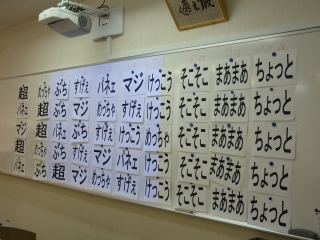 超 めっちゃ ぶち すげぇ パネェ マジ けっこう そこそこ まあまあ ちょっと
パネェ 超 ぶち マジ めっちゃ すげぇ けっこう そこそこ まあまあ ちょっと
マジ パネェ 超 ぶち すげぇ けっこう めっちゃ そこそこ まあまあ ちょっと
超 めっちゃ ぶち すげぇ マジ パネェ けっこう そこそこ まあまあ ちょっと
パネェ ぶち 超 めっちゃ すげぇ マジ けっこう そこそこ まあまあ ちょっと